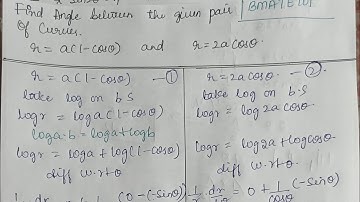 Find Angle between the given pair
Of Curves.
r = a(1-cosθ) and r = 2a cosθ.
r = a(1-cosθ) —①
take log on b.s
logr = loga(1-cosθ)
loga.b = loga+logb
logr = loga + log(1-cosθ)
diff w.r.t θ.
(0-(-Sinθ)
r = 2a cosθ. —②
take log on b.s
logr = log2a cosθ.
logr = log2a + logcosθ
diff w.r.t θ.
1/r . dr/dθ = 0 + 1/cosθ (-Sinθ)